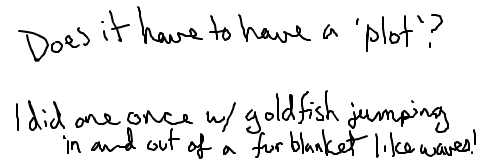 Does it have to have a 'plot'?
I did one once w/ goldfish jumping
in and out of a fur blanket like waves!